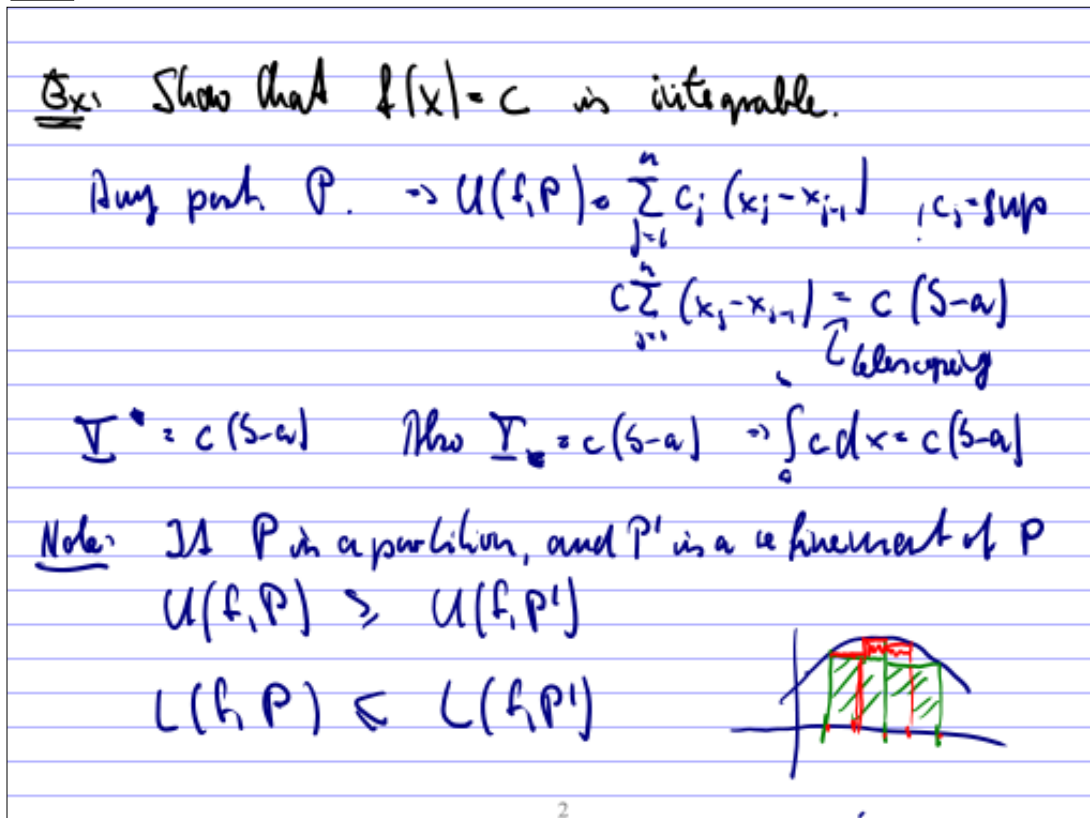 Ex: Show that f(x) = c is integrable.
Any part. P. => U(f,P) = ∑_{j=1}^{n} c_j (x_j - x_{j-1}) , c_j = sup
c ∑_{j=1}^{n} (x_j - x_{j-1}) = c (b-a)
telescoping
I^* = c (b-a) Also I_* = c (b-a) => ∫_a^b c dx = c (b-a)
Note: If P is a partition, and P' is a refinement of P
U(f,P) ≥ U(f,P')
L(f,P) ≤ L(f,P')
2